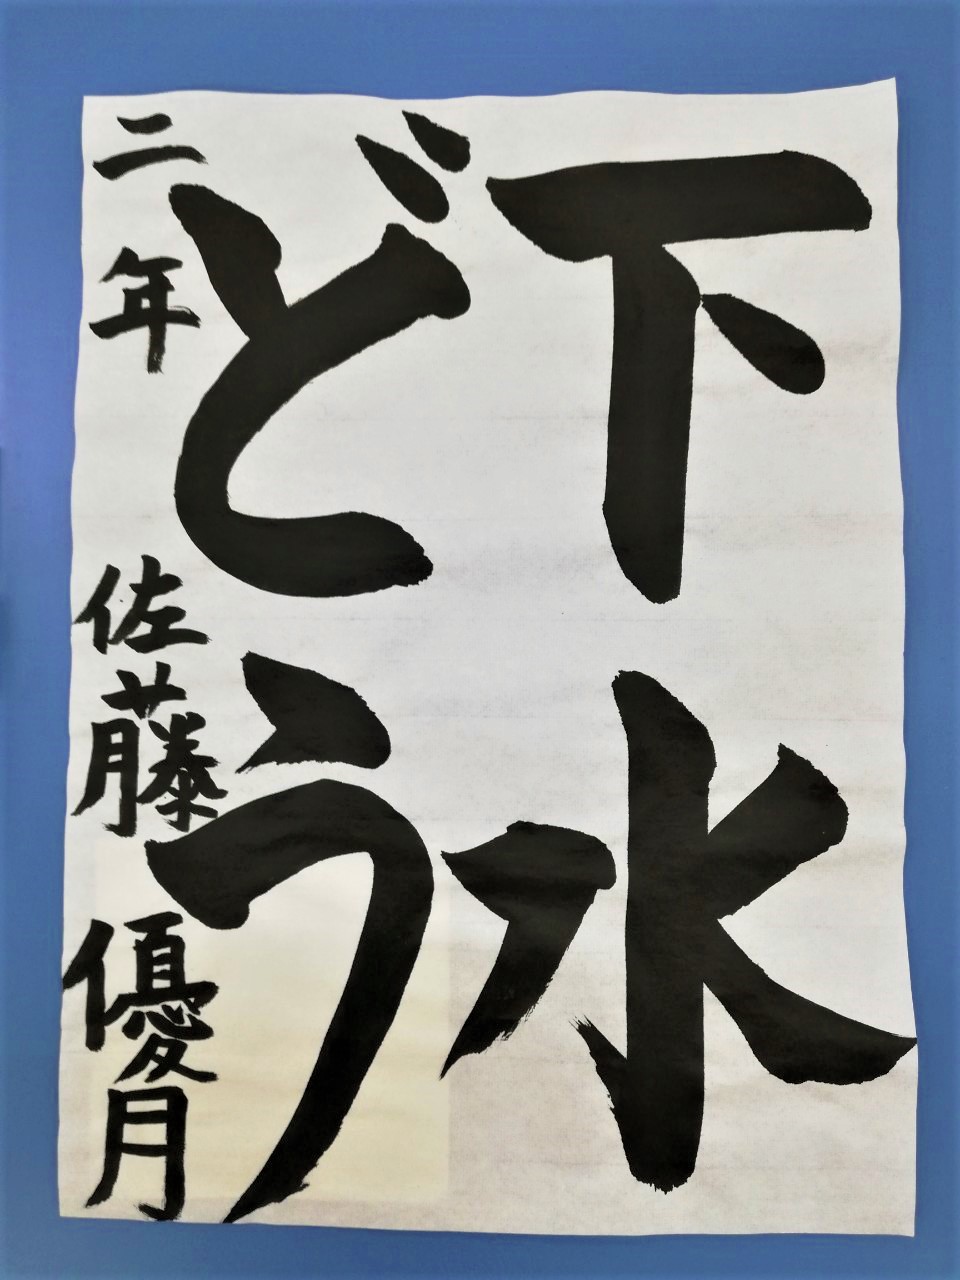 下水
どう
二年 佐藤 優月